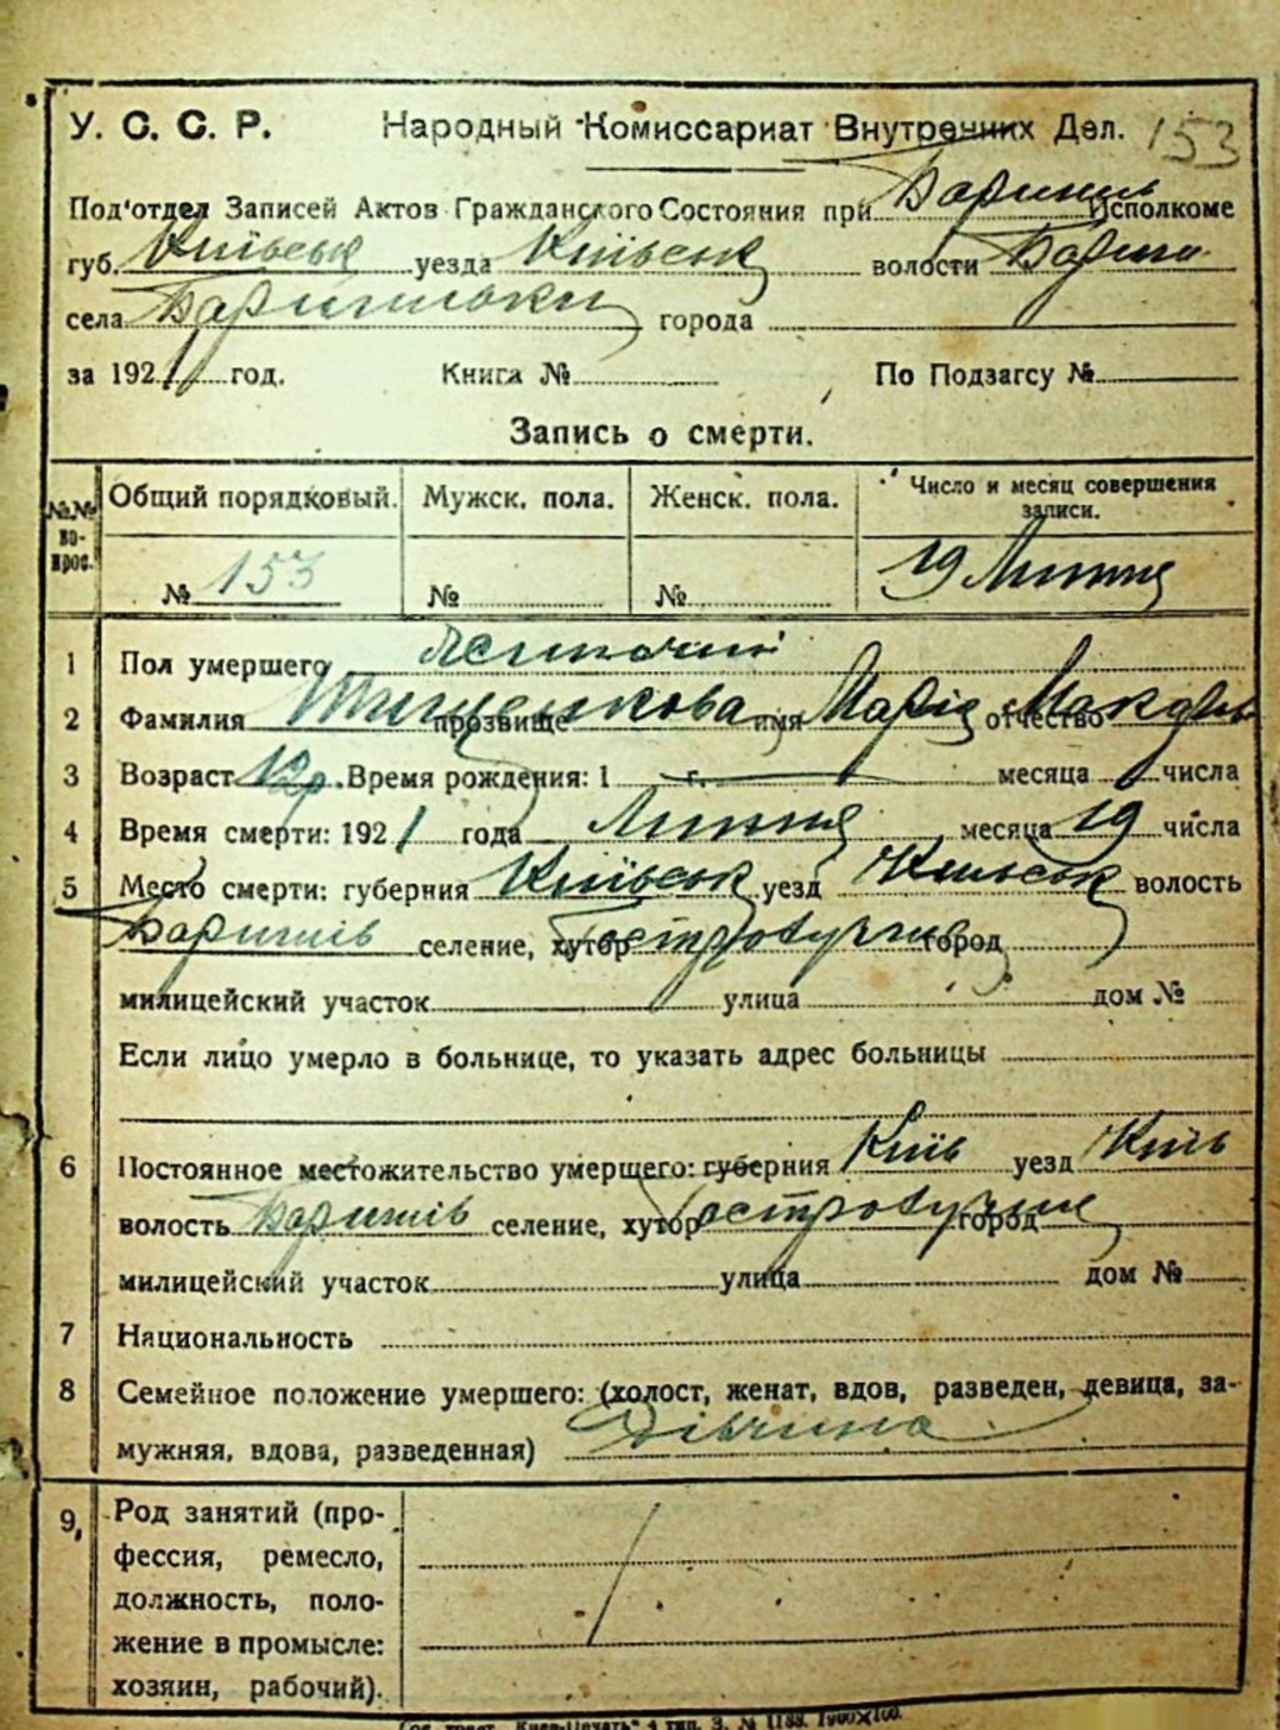 У. С. С. Р. Народный Комиссариат Внутренних Дел. 153
Под'отдел Записей Актов Гражданского Состояния при Баришів Исполкоме
губ. Київськ уезда Київськ волости Бариш
села Баришівки города
за 1921 год. Книга № По Подзагсу №
Запись о смерти.
№№ вопрос. Общий порядковый. Мужск. пола. Женск. пола. Число и месяц совершения записи.
№ 153 № № 19 Липня
1 Пол умершего Жіночий
2 Фамилия Тищенкова прозвище имя Марія отчество
3 Возраст 12 р. Время рождения: 1 г. месяца числа
4 Время смерти: 1921 года Липня месяца 19 числа
5 Место смерти: губерния Київськ уезд Київськ волость
Баришів селение, хутор город
милицейский участок улица дом №
Если лицо умерло в больнице, то указать адрес больницы
6 Постоянное местожительство умершего: губерния Київ уезд Київ
волость Баришів селение, хутор город
милицейский участок улица дом №
7 Национальность
8 Семейное положение умершего: (холост, женат, вдов, разведен, девица, за-
мужняя, вдова, разведенная) Дівчина
9, Род занятий (про-
фессия, ремесло,
должность, поло-
жение в промысле:
хозяин, рабочий).
"Киев-Печать" 4 тип. З. № 1188.